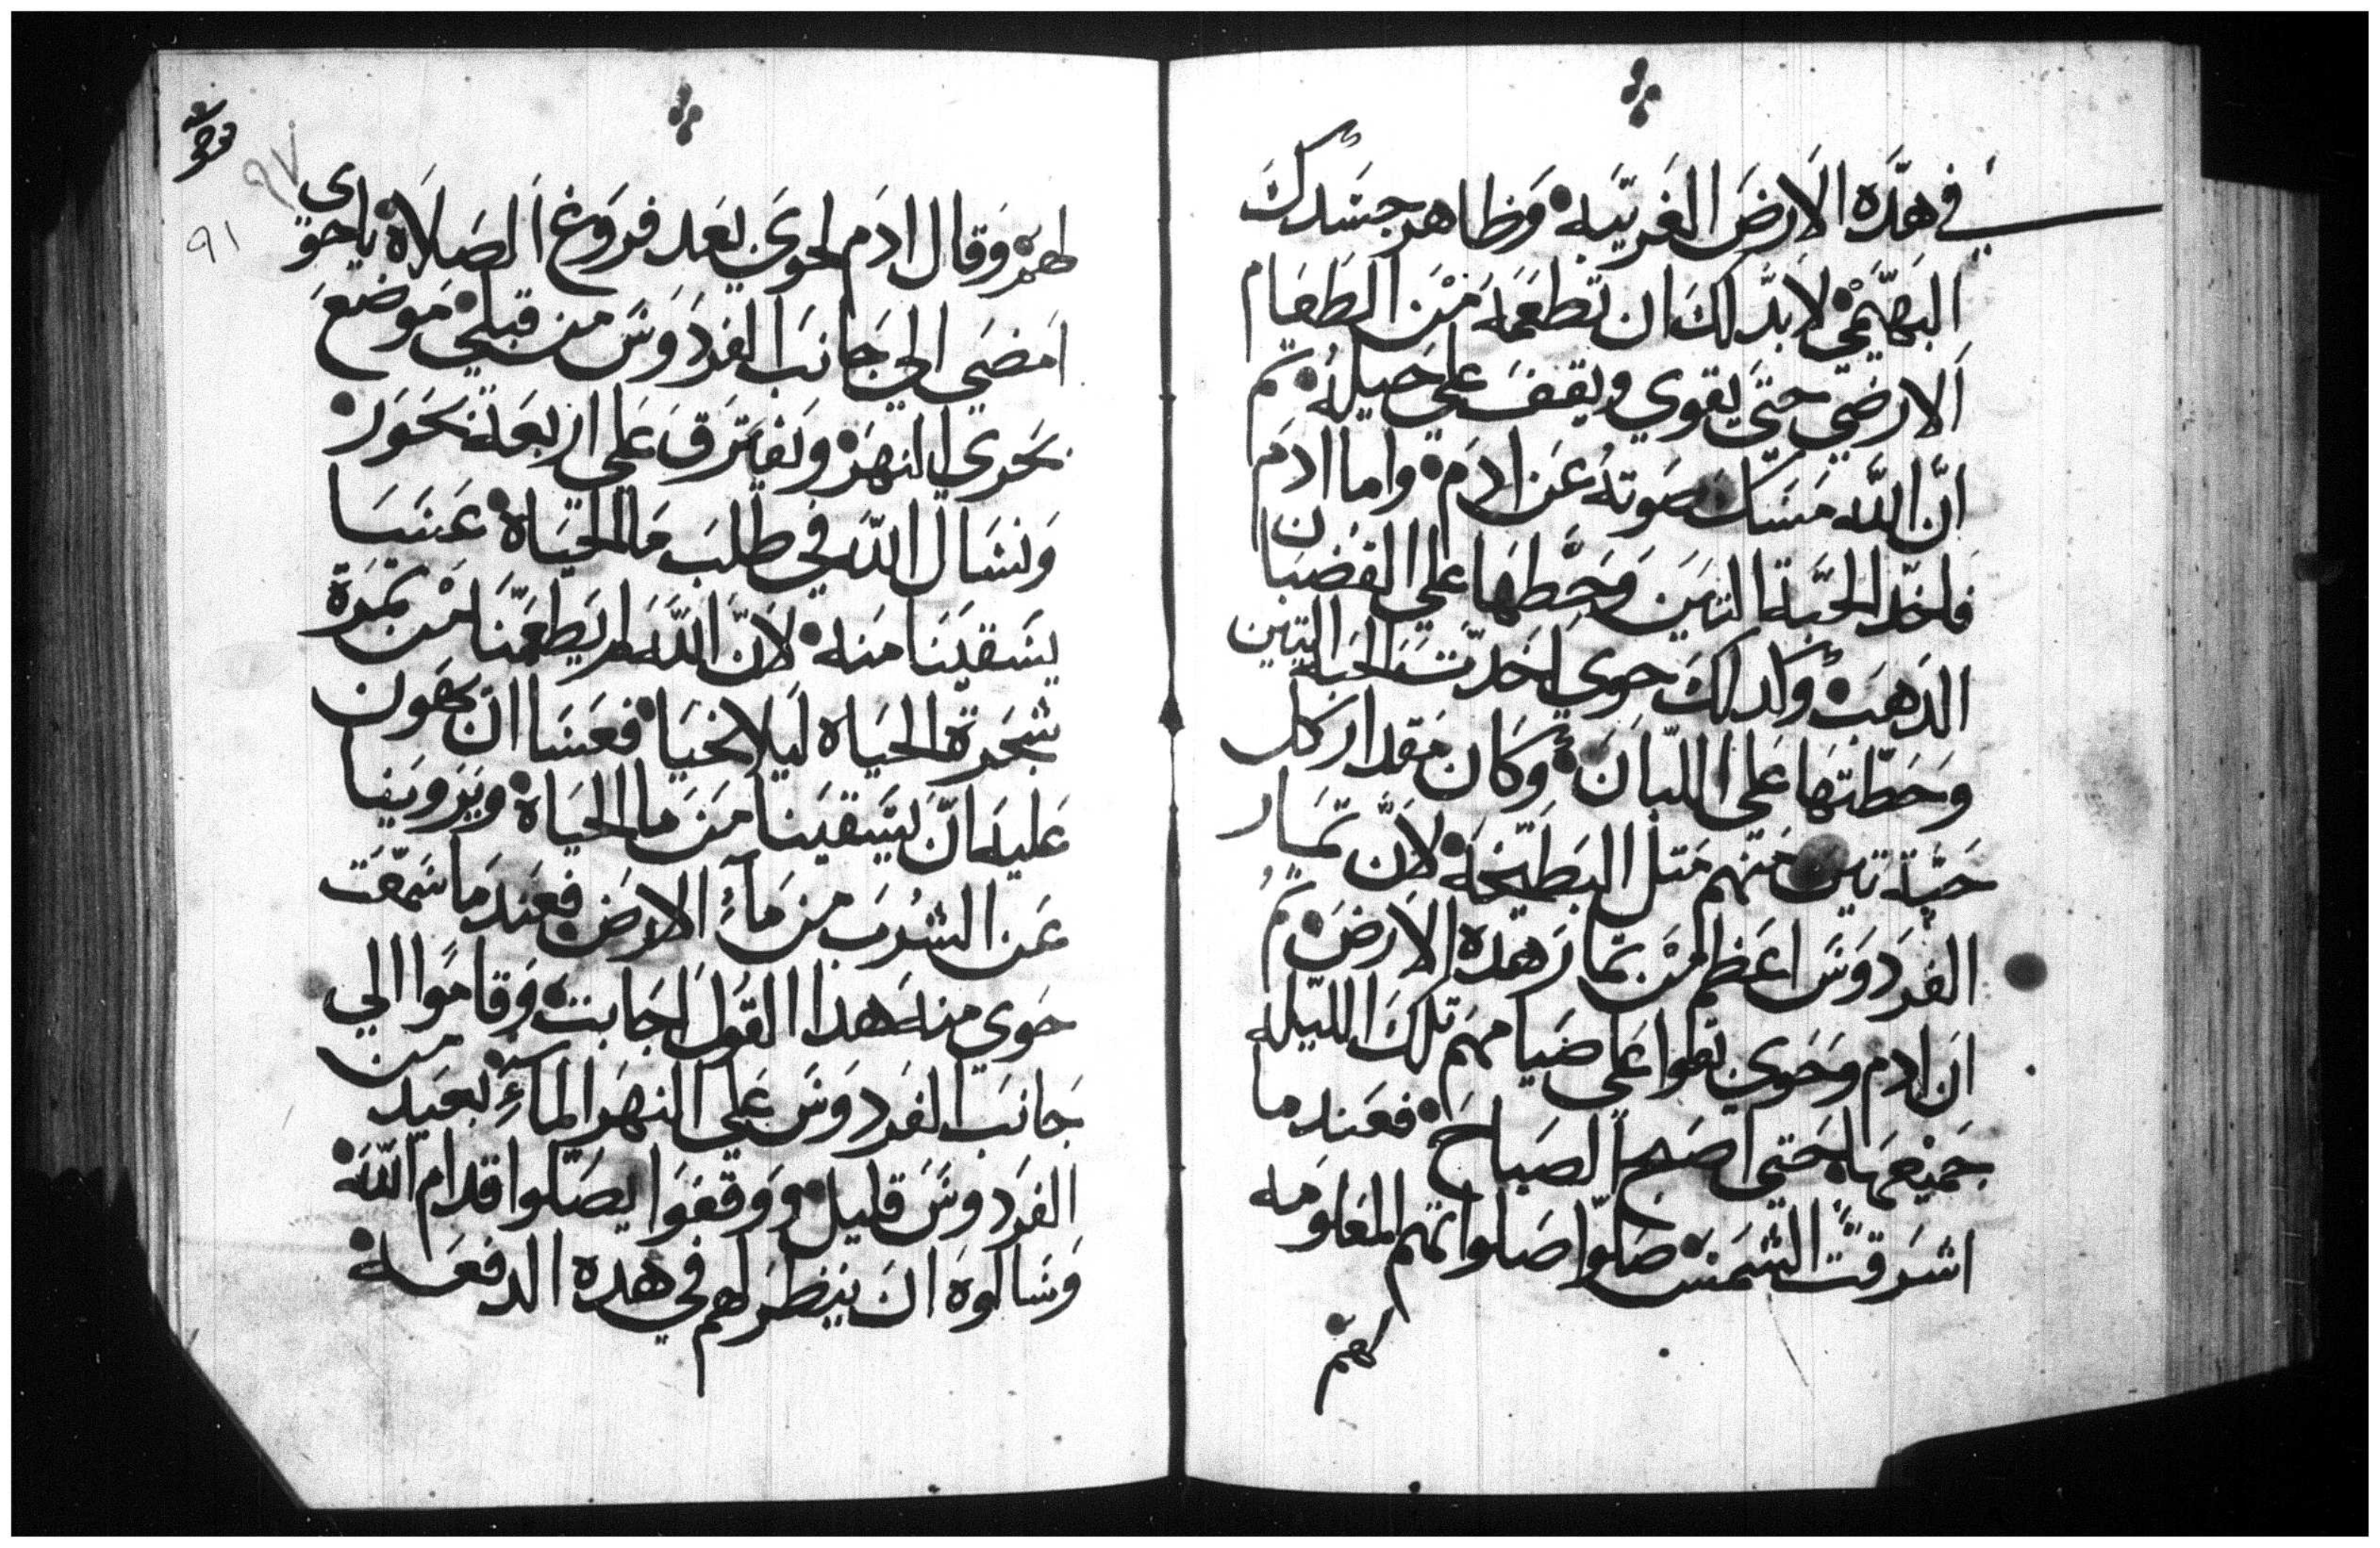 في هذه الارض الغريبه وظاهر جسدك
البهيمي لا بد لك ان تطعمه من الطعام
الارضي حتي يقوي ويقف علي حيله تم
ان الله مسك صوته عن ادم واما ادم
فاخد الحبة التين وحطها علي القضبان
الدهب وكدلك حوي اخدت الحبه التين
وحطتها علي اللبان وكان مقدار كل
حبة تين منهم متل البطيخه لان تمار
الفردوس اعظم من تمار هده الارض تم
ان ادم وحوي بقوا علي ضيامهم تلك الليله
جميعها حتي اصبح الصباح فعند ما
اشرقت الشمس صلوا صلواتهم المعلومه
لهم
لهم وقال ادم لحوي بعد فروغ الصلاة ياحوي
امضي الي جانب الفردوس من قبلي موضع
يجري النهر ويفترق علي اربعة بحور
ونسال الله في طلب ما الحياة عسا
يسقينا منه لان الله لم يطعمنا من تمرة
شجرة الحياه ليلا نحيا فعسا ان يهون
عليه ان يسقينا من ما الحياة ويروينا
عن الشرب من مآء الارض فعند ما سمعت
حوي منه هدا القول اجابت وقاموا الي
جانب الفردوس علي النهر المآء بعيد من
الفردوس قليل ووقفوا يصلوا قدام الله
وسالوه ان ينظر لهم في هده الدفعة
٩٧
٩١